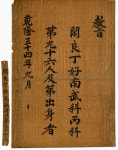 教旨
閑良丁好南武科丙科
第九十六人及第出身者
乾隆三十四年九月